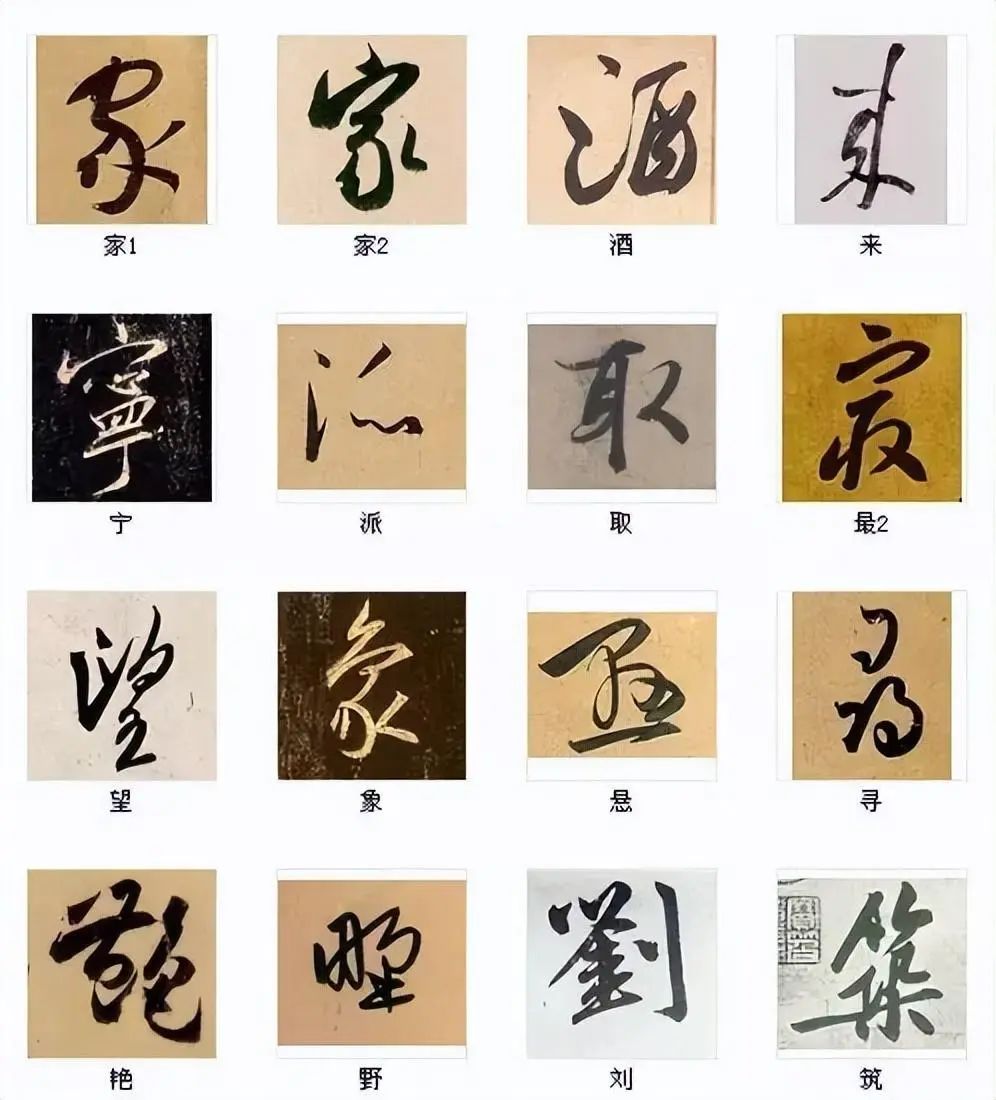 家 家 酒 来
家1 家2 酒 来
寧 派 取 冣
宁 派 取 最2
望 象 悬 尋
望 象 悬 寻
艶 野 劉 築
艳 野 刘 筑